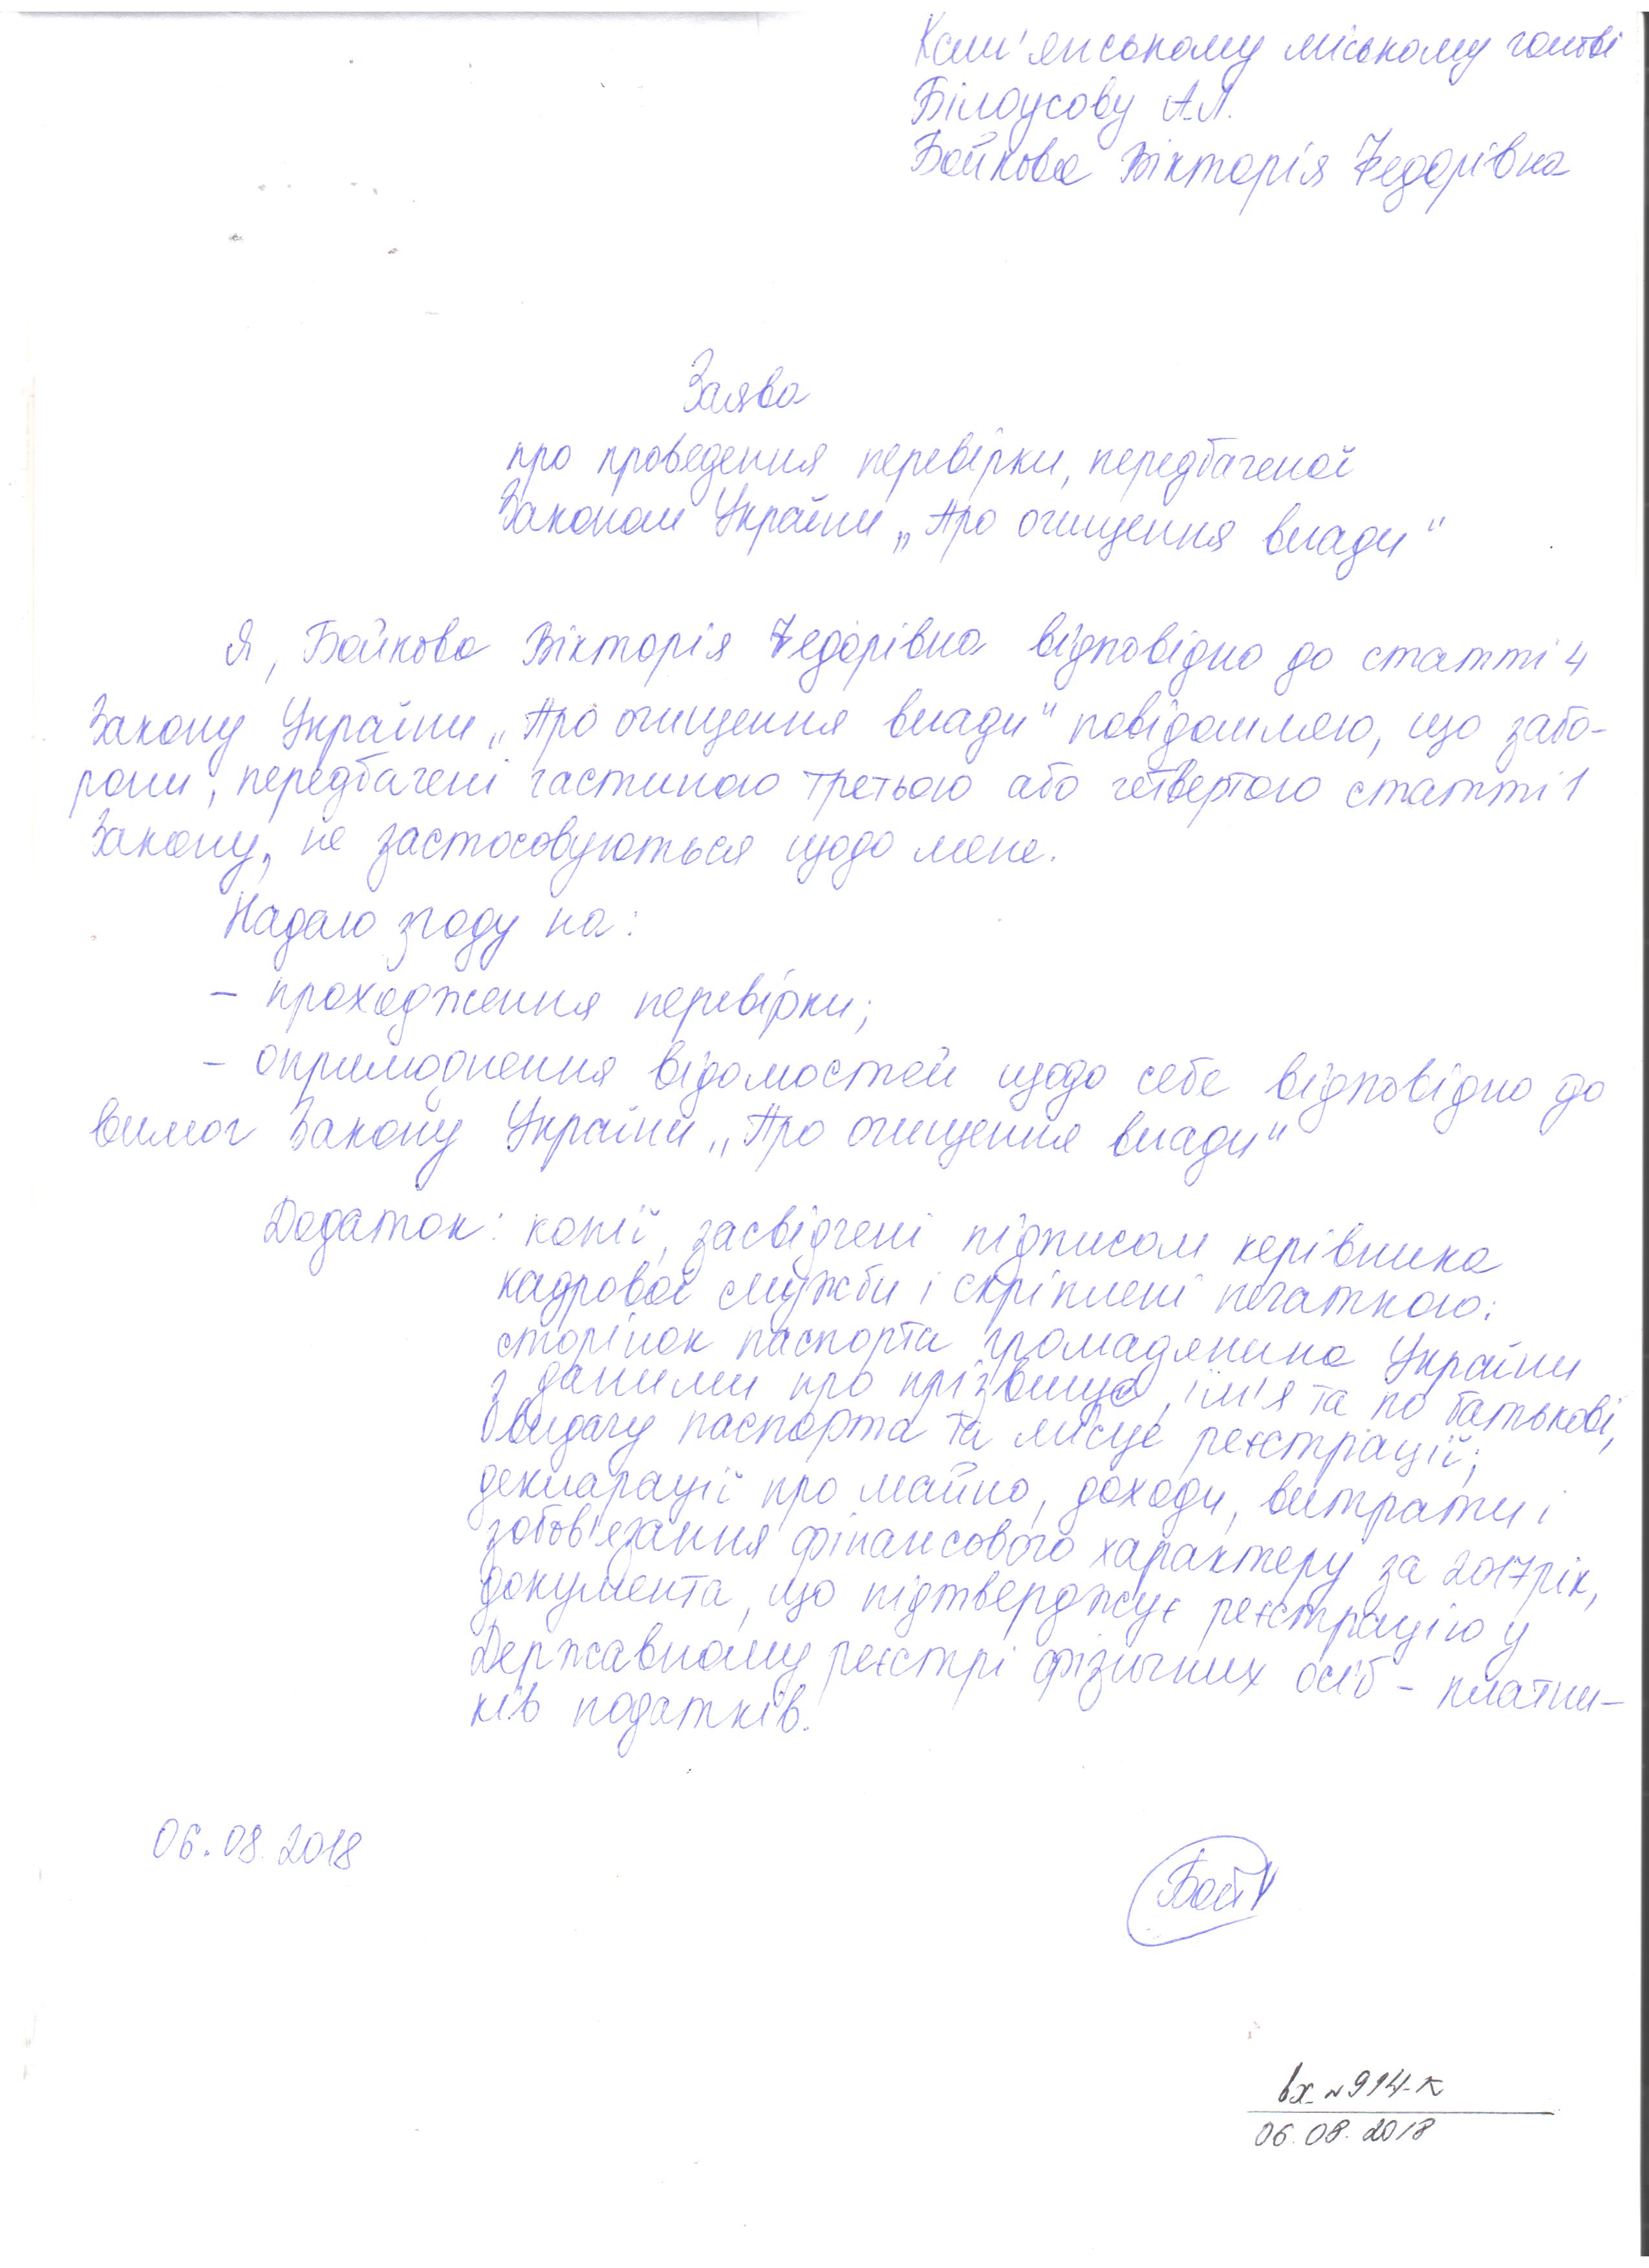 Кам'янському міському голові
Білоусову А.Л.
Бойкова Вікторія Федорівна
Заява
про проведення перевірки, передбаченої
Законом України „Про очищення влади"
Я, Бойкова Вікторія Федорівна відповідно до статті 4
Закону України „Про очищення влади" повідомляю, що забо-
рони, передбачені частиною третьою або четвертою статті 1
Закону, не застосовуються щодо мене.
Надаю згоду на:
- проходження перевірки;
- оприлюднення відомостей щодо себе відповідно до
вимог Закону України „Про очищення влади"
Додаток: копії, засвідчені підписом керівника
кадрової служби і скріплені печаткою:
сторінок паспорта громадянина України
з даними про прізвище, ім'я та по батькові,
видачу паспорта та місце реєстрації;
декларації про майно, доходи, витрати і
зобов'язання фінансового характеру за 2017 рік,
документа, що підтверджує реєстрацію у
Державному реєстрі фізичних осіб - платни-
ків податків.
06.08.2018
Бой
вх №914-К
06.08.2018